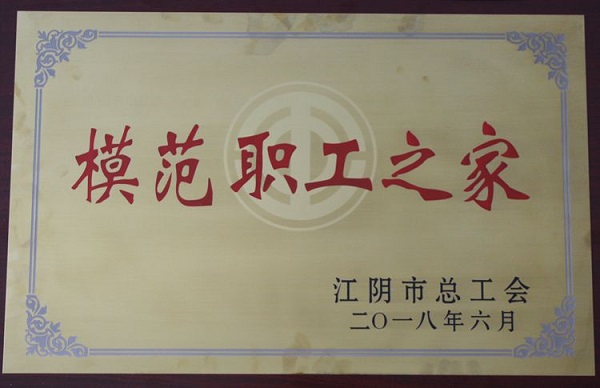 模范职工之家
江阴市总工会
二〇一八年六月